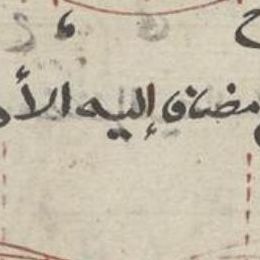 مضاف إليه الأ